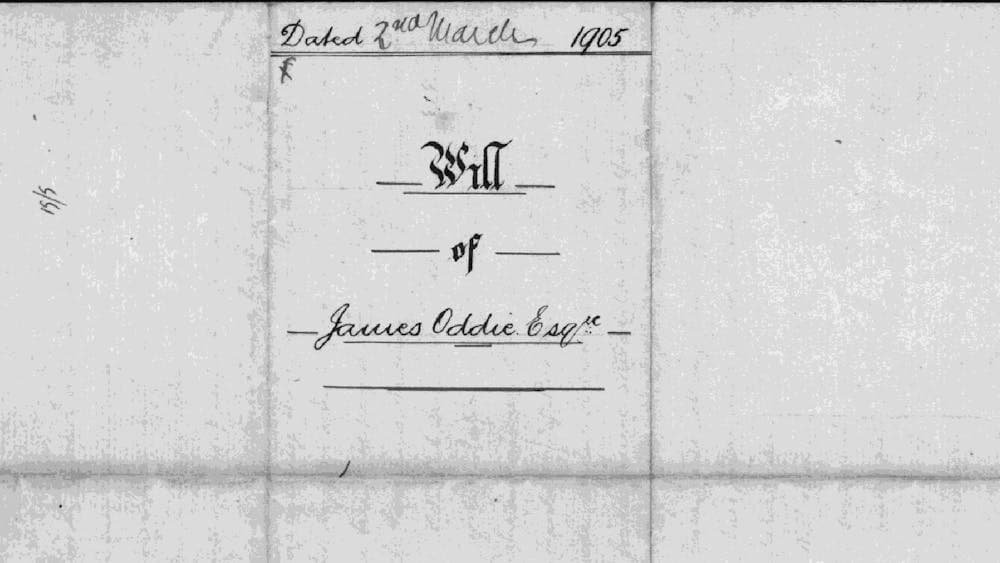 Dated 2nd March 1905
Will
of
James Oddie Esqre
15/5